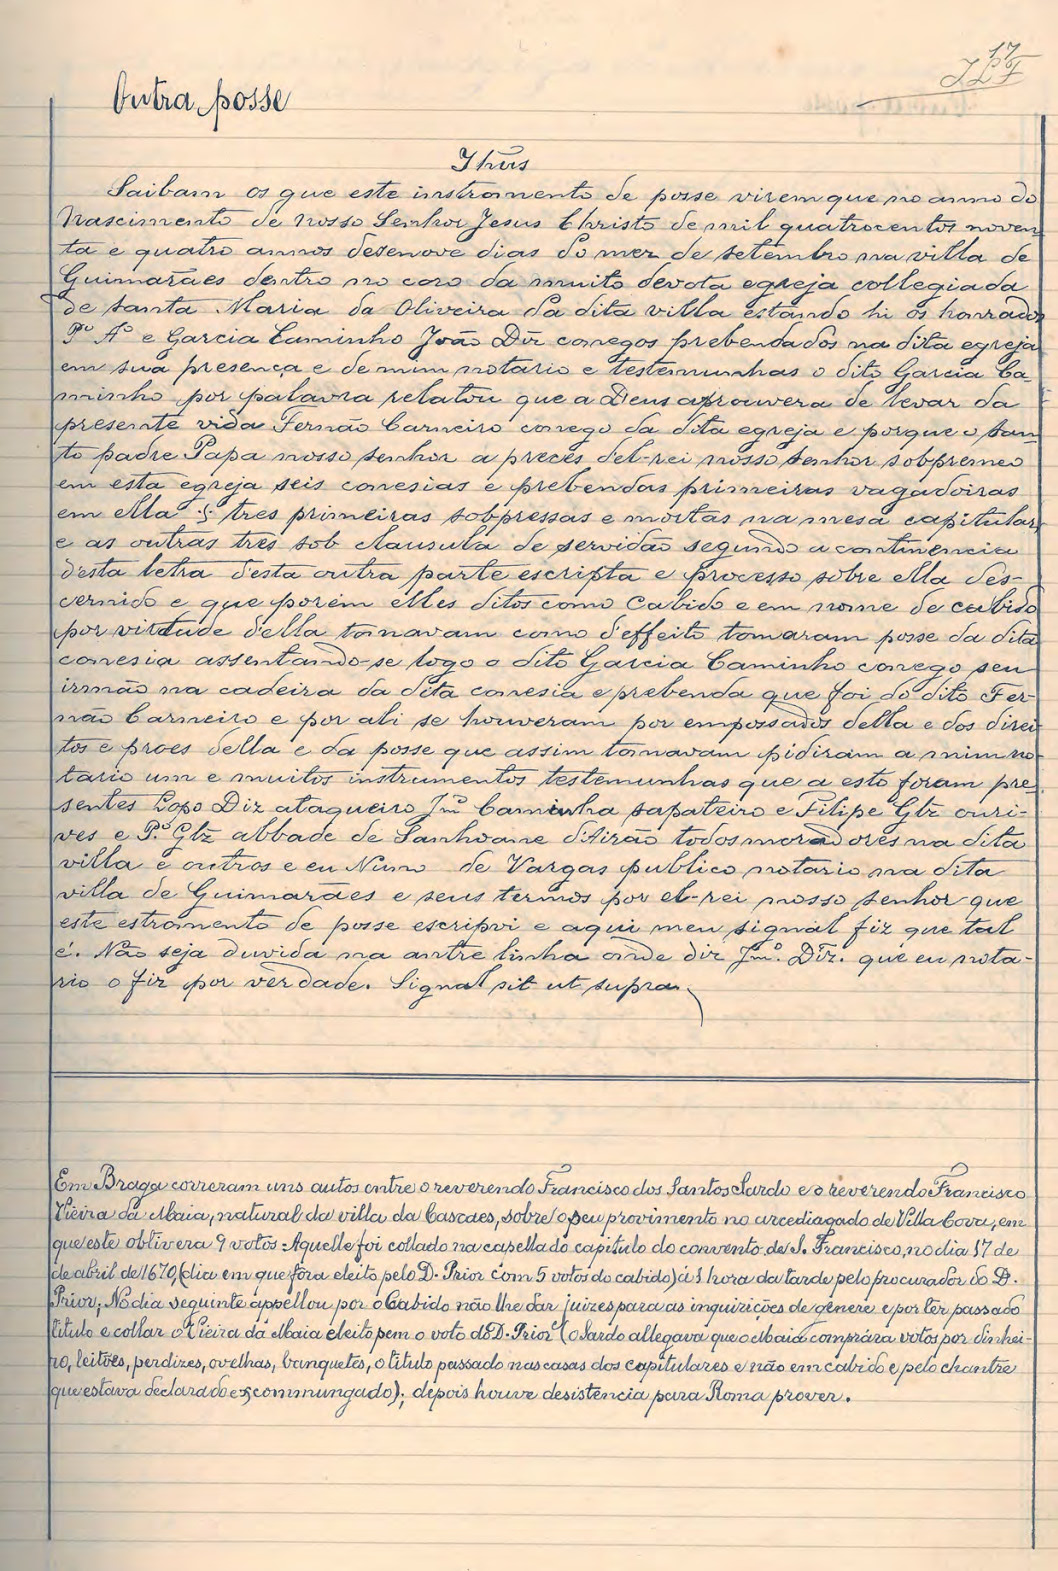 17
JLF
Outra posse
Jhus
Saibam os que este instromento de posse virem que no anno do
Nascimento de Nosso Senhor Jesus Christo de mil quatrocentos noven
ta e quatro annos desenove dias do mez de setembro na villa de
Guimarães dentro no coro da muito devota egreja collegiada
de Santa Maria da Oliveira da dita villa estando hi os honrados
P.º A.º e Garcia Caminho João Diz conegos prebendados na dita egreja
em sua presença e de mim notario e testemunhas o dito Garcia Ca-
minho por palavra relatou que a Deus aprouvera de levar da
presente vida Fernão Carneiro conego da dita egreja e porque o san-
to padre Papa nosso senhor a preces del-rei nosso senhor sobpremeo
em esta egreja seis conesias e prebendas primeiras vagadoiras
em ella .§. tres primeiras sobpressas e mortas na mesa capitular
e as outras tres sob clausula de servidão segundo a continencia
d'esta letra d'esta outra parte escripta e processo sobre ella des-
cernido e que porém elles ditos como Cabido e em nome de cabido
por virtude d'ella tomavam como d'effeito tomaram posse da dita
conesia assentando-se logo o dito Garcia Caminho conego seu
irmão na cadeira da dita conesia e prebenda que foi do dito Fer-
não Carneiro e por ali se houveram por empossados della e dos direi
tos e proes della e da posse que assim tomavam pidiram a mim no
tario um e muitos instrumentos testemunhas que a esto foram pre-
sentes Lopo Diz ataqueiro Jm.º Caminha sapateiro e Filipe Glz ouri-
ves e P.º Glz abbade de Sanhoane d'Airão todos moradores na dita
villa e outros e eu Nuno de Vargas publico notario na dita
villa de Guimarães e seus termos por el-rei nosso senhor que
este estromento de posse escripvi e aqui meu signal fiz que tal
é. Não seja duvida na antre linha onde diz Jm.º Diz. que eu nota-
rio o fiz por verdade. Signal sit ut supra.
Em Braga correram uns autos entre o reverendo Francisco dos Santos Sardo e o reverendo Francisco
Vieira da Maia, natural da villa da Cascaes, sobre o seu provimento no arcediagado de Villa Cova, em
que este obtivera 9 votos. Aquelle foi collado na capella do capitulo do convento de S. Francisco, no dia 17 de
de abril de 1670 (dia em que fôra eleito pelo D. Prior com 5 votos do cabido) á 1 hora da tarde pelo procurador do D.
Prior; No dia seguinte appellou por o Cabido não lhe dar juizes para as inquirições de génere e por ter passado
titulo e collar o Vieira da Maia eleito sem o voto do D. Prior (o Sardo allegava que o Maia comprára votos por dinhei-
ro, leitões, perdizes, ovelhas, banquetes, o titulo passado nas casas dos capitulares e não em cabido e pelo chantre
que estava declarado excommungado); depois houve desistencia para Roma prover.